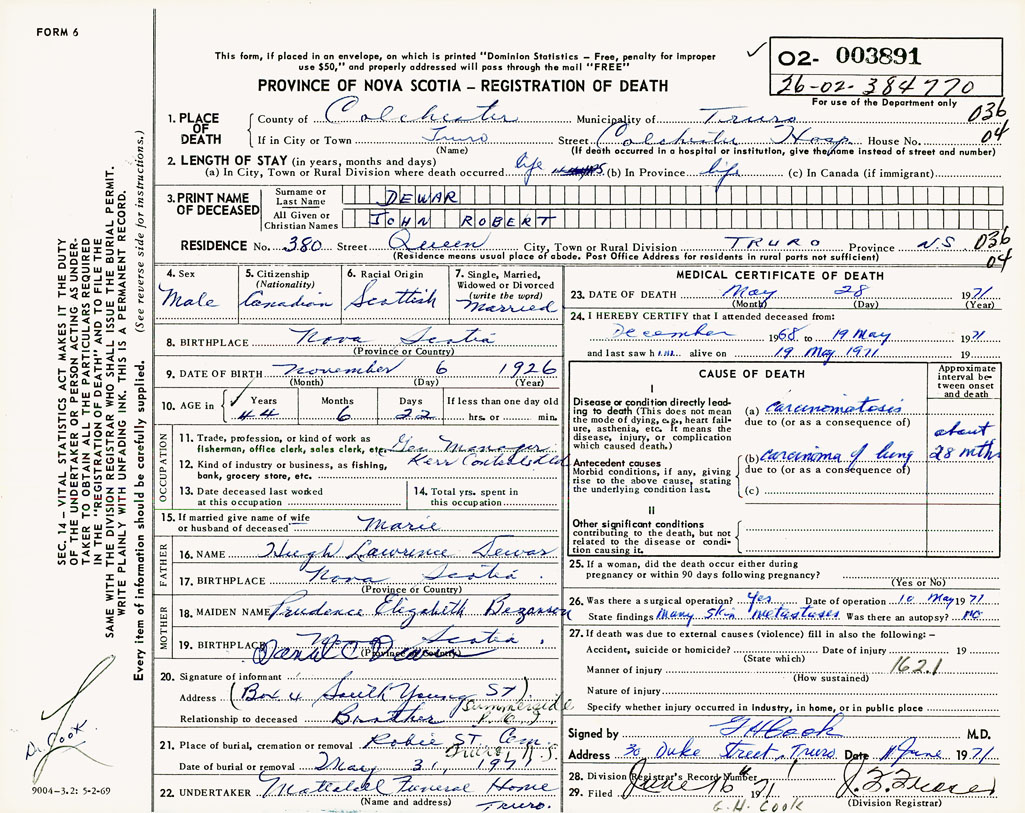 FORM 6
This form, if placed in an envelope, on which is printed "Dominion Statistics - Free, penalty for improper
use $50," and properly addressed will pass through the mail "FREE"
PROVINCE OF NOVA SCOTIA – REGISTRATION OF DEATH
✓ 02- 003891
26-02-384770
For use of the Department only
036
04
1. PLACE OF DEATH
County of Colchester Municipality of Truro
If in City or Town Truro Street Colchester Hosp. House No.
(Name) (If death occurred in a hospital or institution, give the name instead of street and number)
2. LENGTH OF STAY (in years, months and days)
(a) In City, Town or Rural Division where death occurred life (b) In Province life (c) In Canada (if immigrant)
3. PRINT NAME OF DECEASED
Surname or Last Name DEWAR
All Given or Christian Names JOHN ROBERT
RESIDENCE No. 380 Street Queen City, Town or Rural Division TRURO Province N.S. 036
04
(Residence means usual place of abode. Post Office Address for residents in rural parts not sufficient)
4. Sex
Male
5. Citizenship
(Nationality)
Canadian
6. Racial Origin
Scottish
7. Single, Married,
Widowed or Divorced
(write the word)
Married
8. BIRTHPLACE Nova Scotia
(Province or Country)
9. DATE OF BIRTH November 6 1926
(Month) (Day) (Year)
10. AGE in ✓ Years Months Days If less than one day old
44 6 22 hrs. or min.
OCCUPATION
11. Trade, profession, or kind of work as
fisherman, office clerk, sales clerk, etc. Gen Manager
12. Kind of industry or business, as fishing,
bank, grocery store, etc. Kerr
13. Date deceased last worked
at this occupation
14. Total yrs. spent in
this occupation
15. If married give name of wife
or husband of deceased Marie
FATHER
16. NAME Hugh Lawrence Dewar
17. BIRTHPLACE Nova Scotia
(Province or Country)
MOTHER
18. MAIDEN NAME Prudence Elizabeth Bezanson
19. BIRTHPLACE Nova Scotia
(Province or Country)
20. Signature of informant
Address (Box 4 South Young St).
Summerside
P.E.I.
Relationship to deceased Brother
21. Place of burial, cremation or removal Robie ST. Cem.
Truro N.S.
Date of burial or removal May 31, 1971
22. UNDERTAKER Mattatall Funeral Home
(Name and address) Truro.
MEDICAL CERTIFICATE OF DEATH
23. DATE OF DEATH May 28 1971
(Month) (Day) (Year)
24. I HEREBY CERTIFY that I attended deceased from:
December 1968 to 19 May 1971
and last saw him alive on 19 May 1971 19
CAUSE OF DEATH
Approximate
interval be-
tween onset
and death
I
Disease or condition directly lead-
ing to death (This does not mean
the mode of dying, e.g., heart fail-
ure, asthenia, etc. It means the
disease, injury, or complication
which caused death.)
(a) carcinomatosis
due to (or as a consequence of)
Antecedent causes
Morbid conditions, if any, giving
rise to the above cause, stating
the underlying condition last.
(b) carcinoma of lung
due to (or as a consequence of)
about
28 mths
(c)
II
Other significant conditions
contributing to the death, but not
related to the disease or condi-
tion causing it.
25. If a woman, did the death occur either during
pregnancy or within 90 days following pregnancy?
(Yes or No)
26. Was there a surgical operation? Yes Date of operation 10 May 1971
State findings Many skin metastases Was there an autopsy? NO
27. If death was due to external causes (violence) fill in also the following:—
Accident, suicide or homicide? Date of injury 19
(State which)
Manner of injury 162.1
(How sustained)
Nature of injury
Specify whether injury occurred in industry, in home, or in public place
Signed by G H Cook M.D.
Address 30 Duke Street, Truro Date 11 June 1971
28. Division Registrar's Record Number
29. Filed June 16 1971
(Division Registrar)
G. H. COOK
SEC. 14 – VITAL STATISTICS ACT MAKES IT THE DUTY
OF THE UNDERTAKER OR PERSON ACTING AS UNDER-
TAKER TO OBTAIN ALL THE PARTICULARS REQUIRED
IN THE "REGISTRATION OF DEATH" AND TO FILE THE
SAME WITH THE DIVISION REGISTRAR WHO SHALL ISSUE THE BURIAL PERMIT.
WRITE PLAINLY WITH UNFADING INK. THIS IS A PERMANENT RECORD.
Every item of information should be carefully supplied. (See reverse side for instructions.)
Dr Cook
9004-3.2: 5-2-69